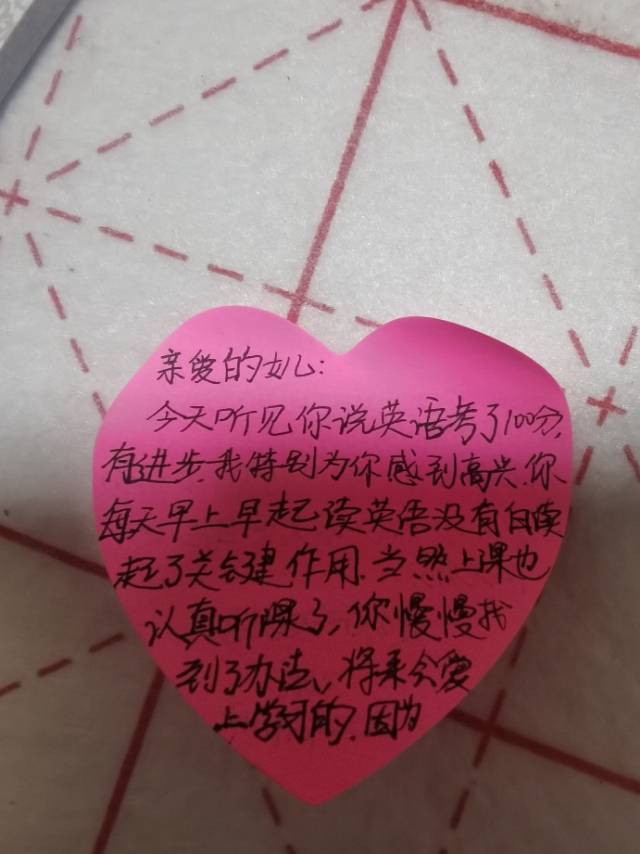 亲爱的女儿:
今天听见你说英语考了100分,
有进步,我特别为你感到高兴,你
每天早上早起读英语没有白读
起了关键作用.当然上课也
认真听课了,你慢慢找
到了办法、将来会爱
上学习的,因为